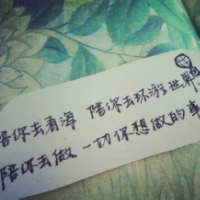 陪你去看海 陪你去环游世界
陪你去做 一切你想做的事